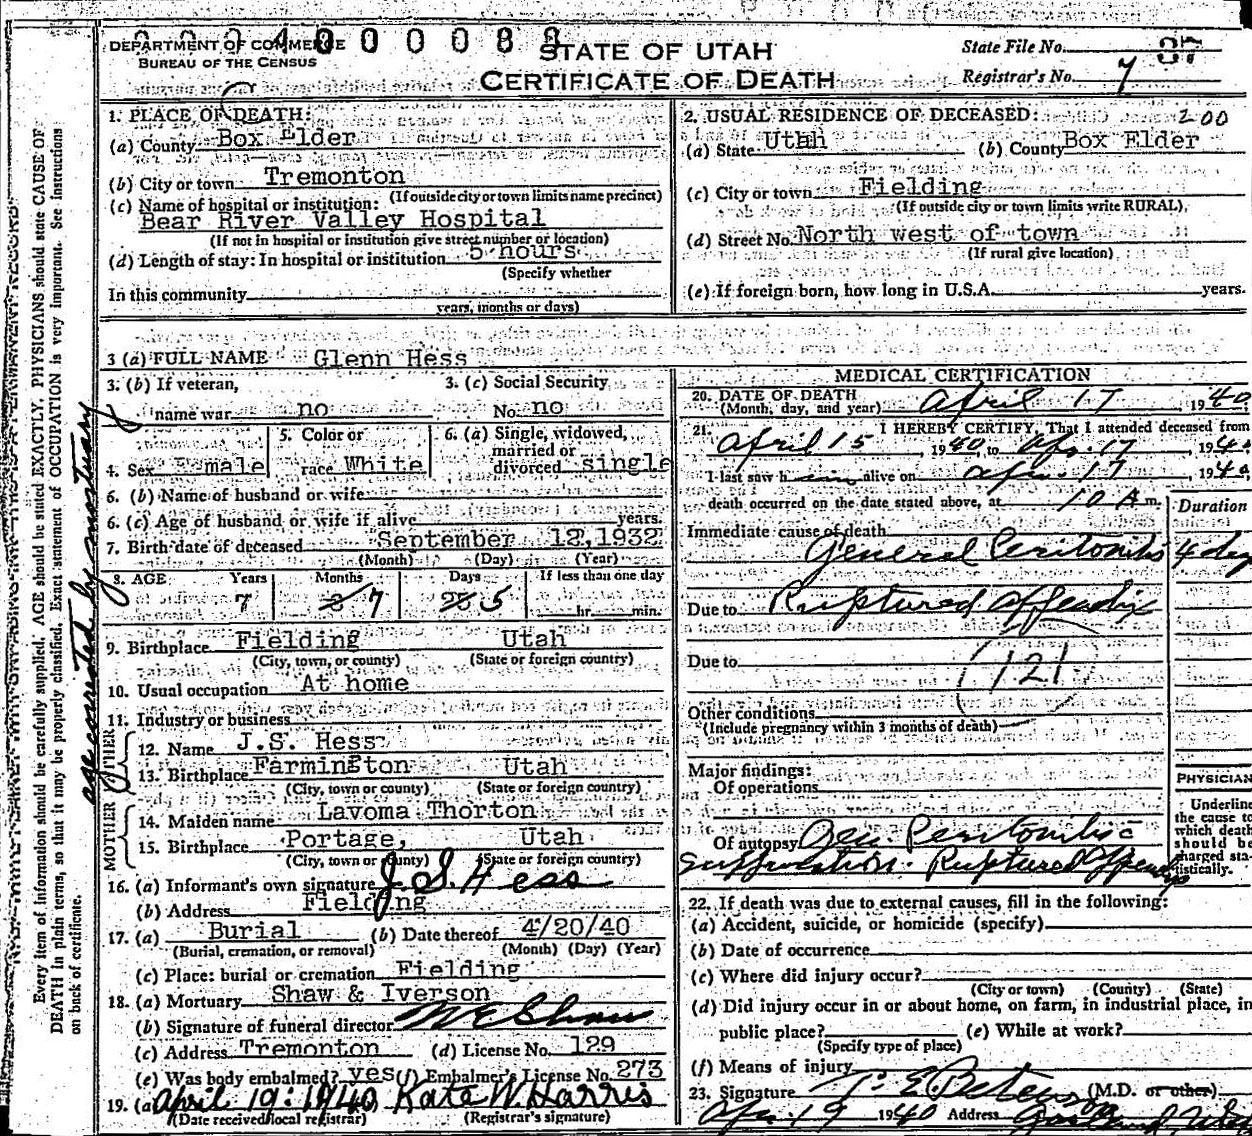 DEPARTMENT OF COMMERCE
BUREAU OF THE CENSUS
STATE OF UTAH
CERTIFICATE OF DEATH
State File No. 87
Registrar's No. 7
1. PLACE OF DEATH:
(a) County Box Elder
(b) City or town Tremonton
(If outside city or town limits name precinct)
(c) Name of hospital or institution:
Bear River Valley Hospital
(If not in hospital or institution give street number or location)
(d) Length of stay: In hospital or institution 5 hours
(Specify whether
In this community
years, months or days)
2. USUAL RESIDENCE OF DECEASED: 200
(a) State Utah (b) County Box Elder
(c) City or town Fielding
(If outside city or town limits write RURAL)
(d) Street No. North west of town
(If rural give location)
(e) If foreign born, how long in U.S.A. years.
3 (a) FULL NAME Glenn Hess
3. (b) If veteran, name war no
3. (c) Social Security No. no
4. Sex Female
5. Color or race White
6. (a) Single, widowed, married or divorced single
6. (b) Name of husband or wife
6. (c) Age of husband or wife if alive years.
7. Birth date of deceased September 12, 1932
(Month) (Day) (Year)
8. AGE Years Months Days If less than one day
7 7 5 hr. min.
9. Birthplace Fielding Utah
(City, town, or county) (State or foreign country)
10. Usual occupation At home
11. Industry or business
FATHER
12. Name J.S. Hess
13. Birthplace Farmington Utah
(City, town or county) (State or foreign country)
MOTHER
14. Maiden name Lavoma Thorton
15. Birthplace Portage, Utah
(City, town or county) (State or foreign country)
16. (a) Informant's own signature J. S. Hess
(b) Address Fielding
17. (a) Burial (b) Date thereof 4/20/40
(Burial, cremation, or removal) (Month) (Day) (Year)
(c) Place: burial or cremation Fielding
18. (a) Mortuary Shaw & Iverson
(b) Signature of funeral director M E Shaw
(c) Address Tremonton (d) License No. 129
(e) Was body embalmed? yes (f) Embalmer's License No. 273
19. (a) April 19: 1940 Kate W. Harris
(Date received local registrar) (Registrar's signature)
MEDICAL CERTIFICATION
20. DATE OF DEATH
(Month, day, and year) April 17 1940
21. I HEREBY CERTIFY, That I attended deceased from
April 15, 1940, to Apr. 17, 1940
I last saw h im alive on Apr. 17 1940
death occurred on the date stated above, at 10 A m.
Duration
Immediate cause of death
General Peritonitis 4 day
Due to Ruptured appendix
Due to
(121)
Other conditions
(Include pregnancy within 3 months of death)
Major findings:
Of operations
Of autopsy Gen. Peritonitis
Ruptured Appendix
PHYSICIAN
Underline
the cause to
which death
should be
charged sta-
tistically.
22. If death was due to external causes, fill in the following:
(a) Accident, suicide, or homicide (specify)
(b) Date of occurrence
(c) Where did injury occur?
(City or town) (County) (State)
(d) Did injury occur in or about home, on farm, in industrial place, in
public place? (e) While at work?
(Specify type of place)
(f) Means of injury
23. Signature T. E. Peterson (M.D. or other)
Apr. 19 1940 Address Garland, Utah
Every item of information should be carefully supplied. AGE should be stated EXACTLY. PHYSICIANS should state CAUSE OF
DEATH in plain terms, so that it may be properly classified. Exact statement of OCCUPATION is very important. See instructions
on back of certificate.
by mortuary